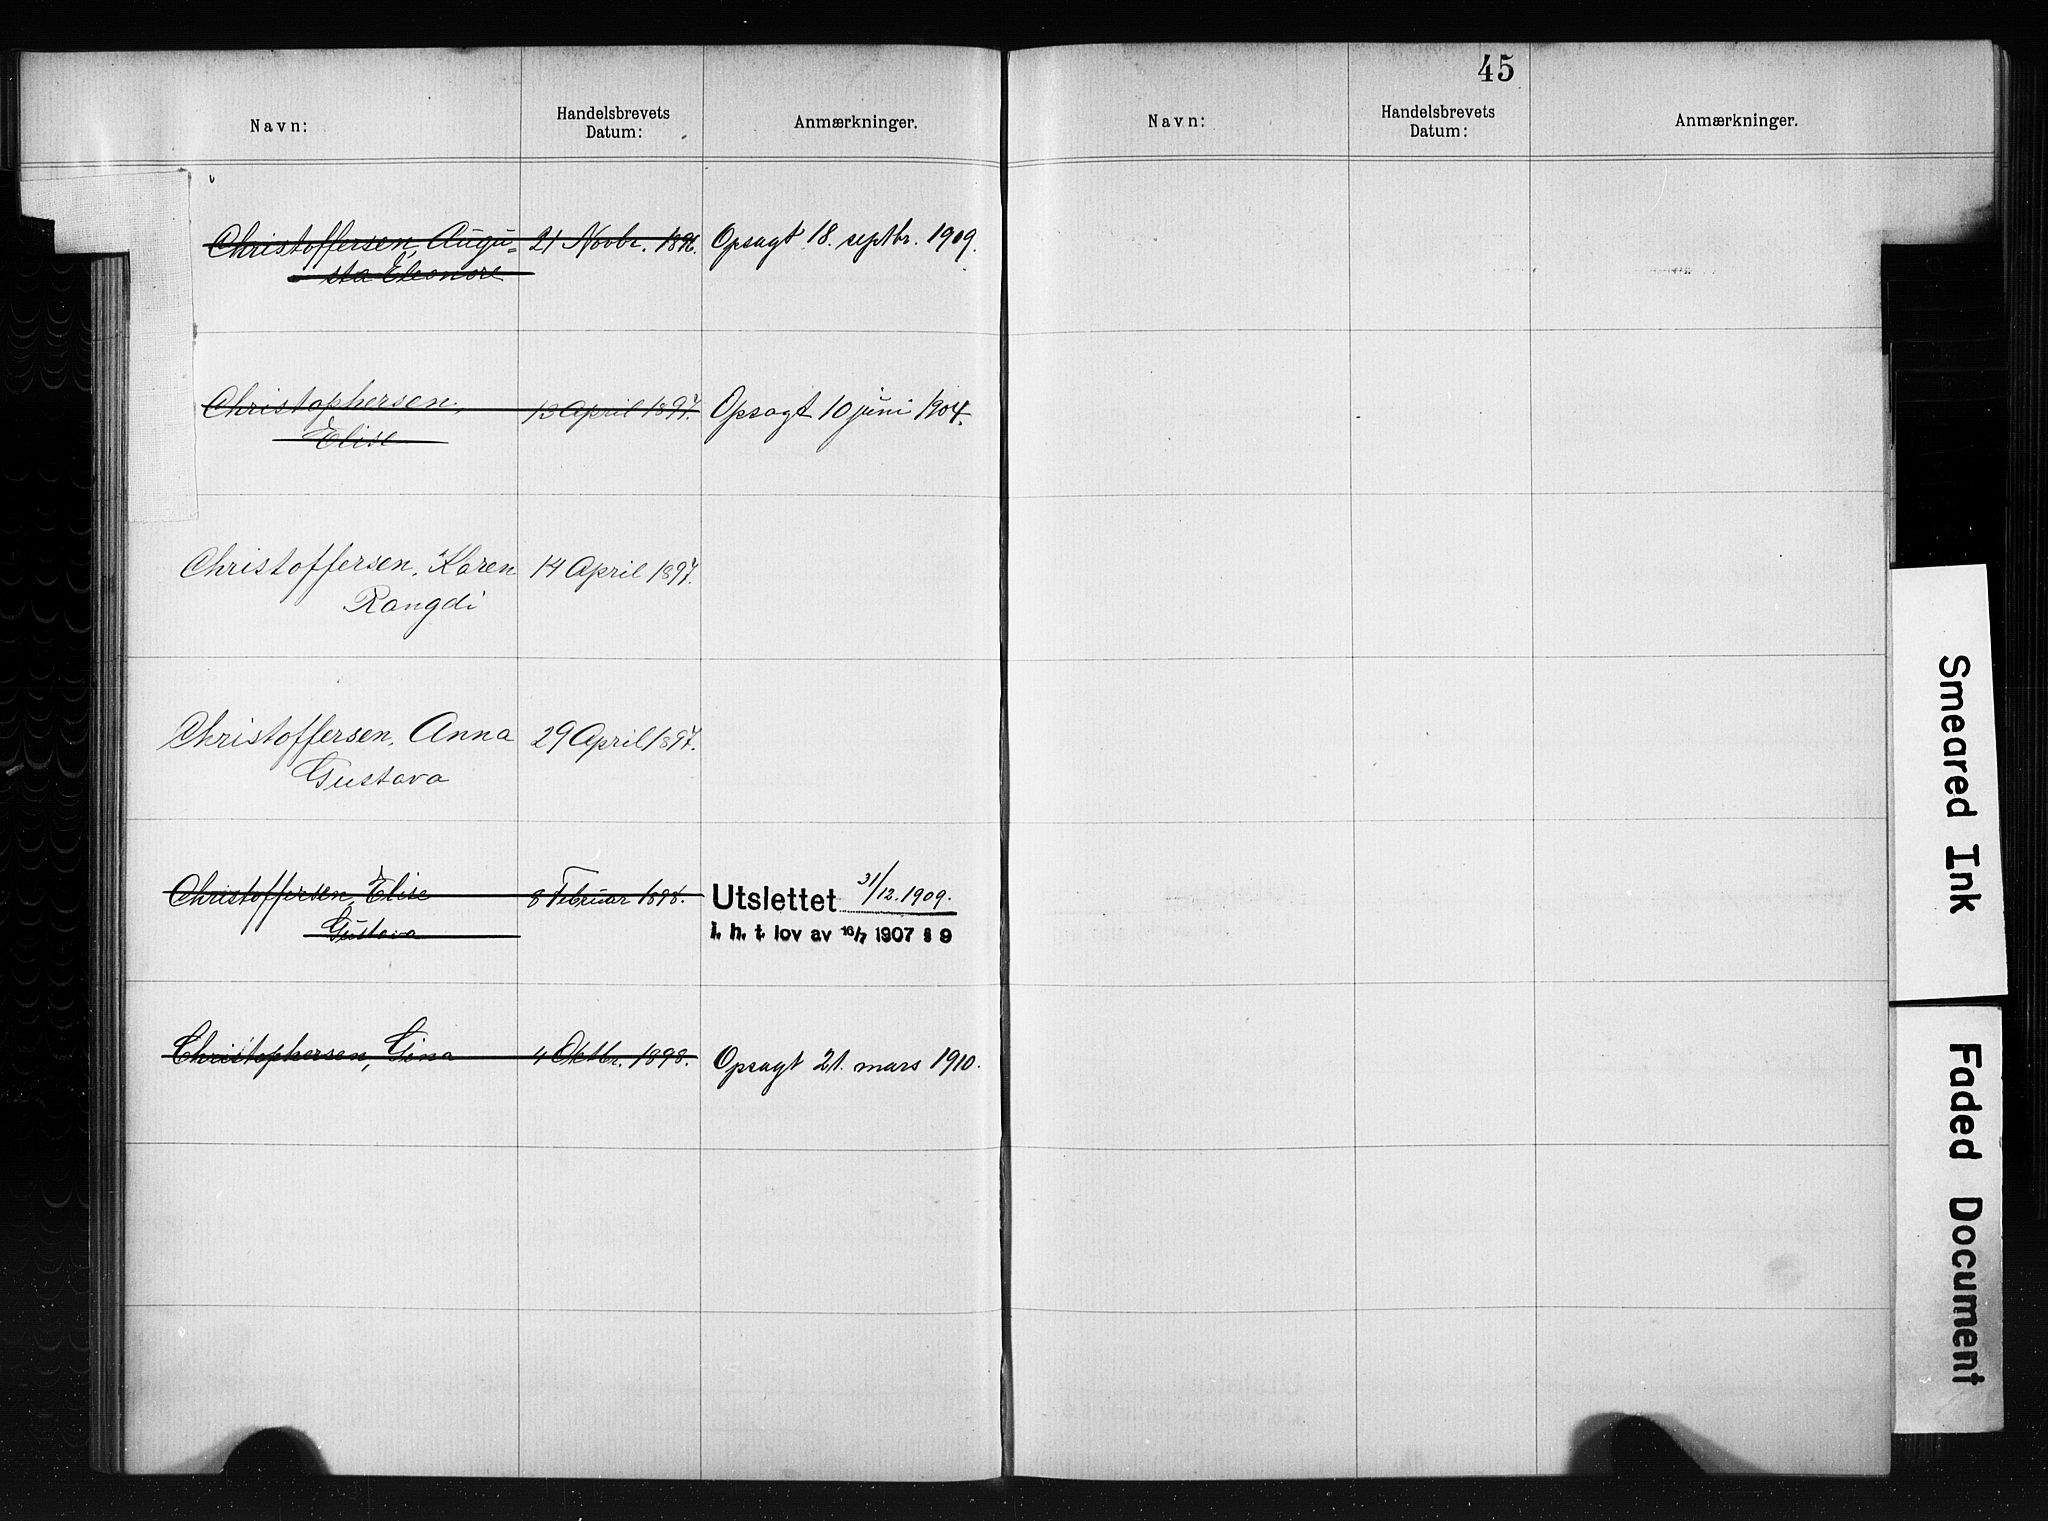 Navn:
Handelsbrevets
Datum:
Anmærkninger.
Christoffersen, Augu=
sta Eleonore
21 Novbr. 1896.
Opsagt 18. septbr. 1909.
Christophersen,
Elise
13 April 1897.
Opsagt 10 juni 1904.
Christoffersen, Karen
Rangdi
14 April 1897.
Christoffersen, Anna
Gustava
29 April 1897.
Christoffersen, Elise
Gustava
8 Februar 1898.
Utslettet 31/12.1909.
i. h. t. lov av 16/7 1907 § 9
Christophersen, Gina
4 Oktbr. 1898.
Opsagt 21. mars 1910.
45
Navn:
Handelsbrevets
Datum:
Anmærkninger.
Smeared Ink
Faded Document